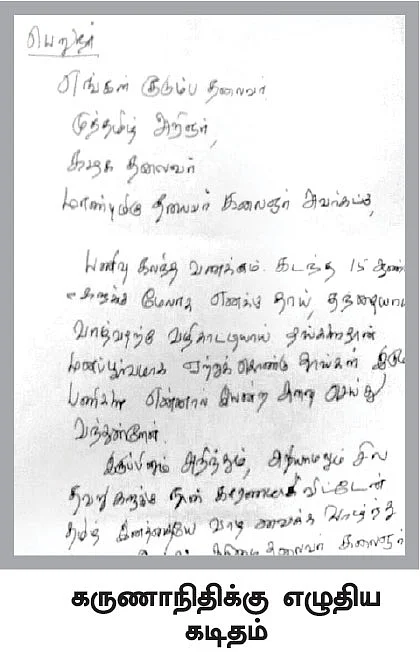 பெறுநர்
எங்கள் குடும்ப தலைவர்
முத்தமிழ் அறிஞர்,
கழக தலைவர்
மாண்புமிகு தலைவர் கலைஞர் அவர்கட்கு,
பணிவு கலந்த வணக்கம். கடந்த 15 ஆண்
மேலாக எனக்கு தாய், தந்தையாய
வாழ்வதற்கு வழிகாட்டியாய் தங்களைதான்
மனப்பூர்வமாக ஏற்றுக் கொண்டு தாங்கள் இடும்
பணிகளை என்னால் இயன்ற அளவு செய்து
வந்துள்ளேன்
இருப்பினும் அறிந்தும், அறியாமலும் சில
தவறுகளுக்கு நான் காரணமாகி விட்டேன்
தமிழ் இனத்தையே வாழ வைக்க வாழ்ந்து
தலைவர் கலைஞர்
கருணாநிதிக்கு எழுதிய
கடிதம்